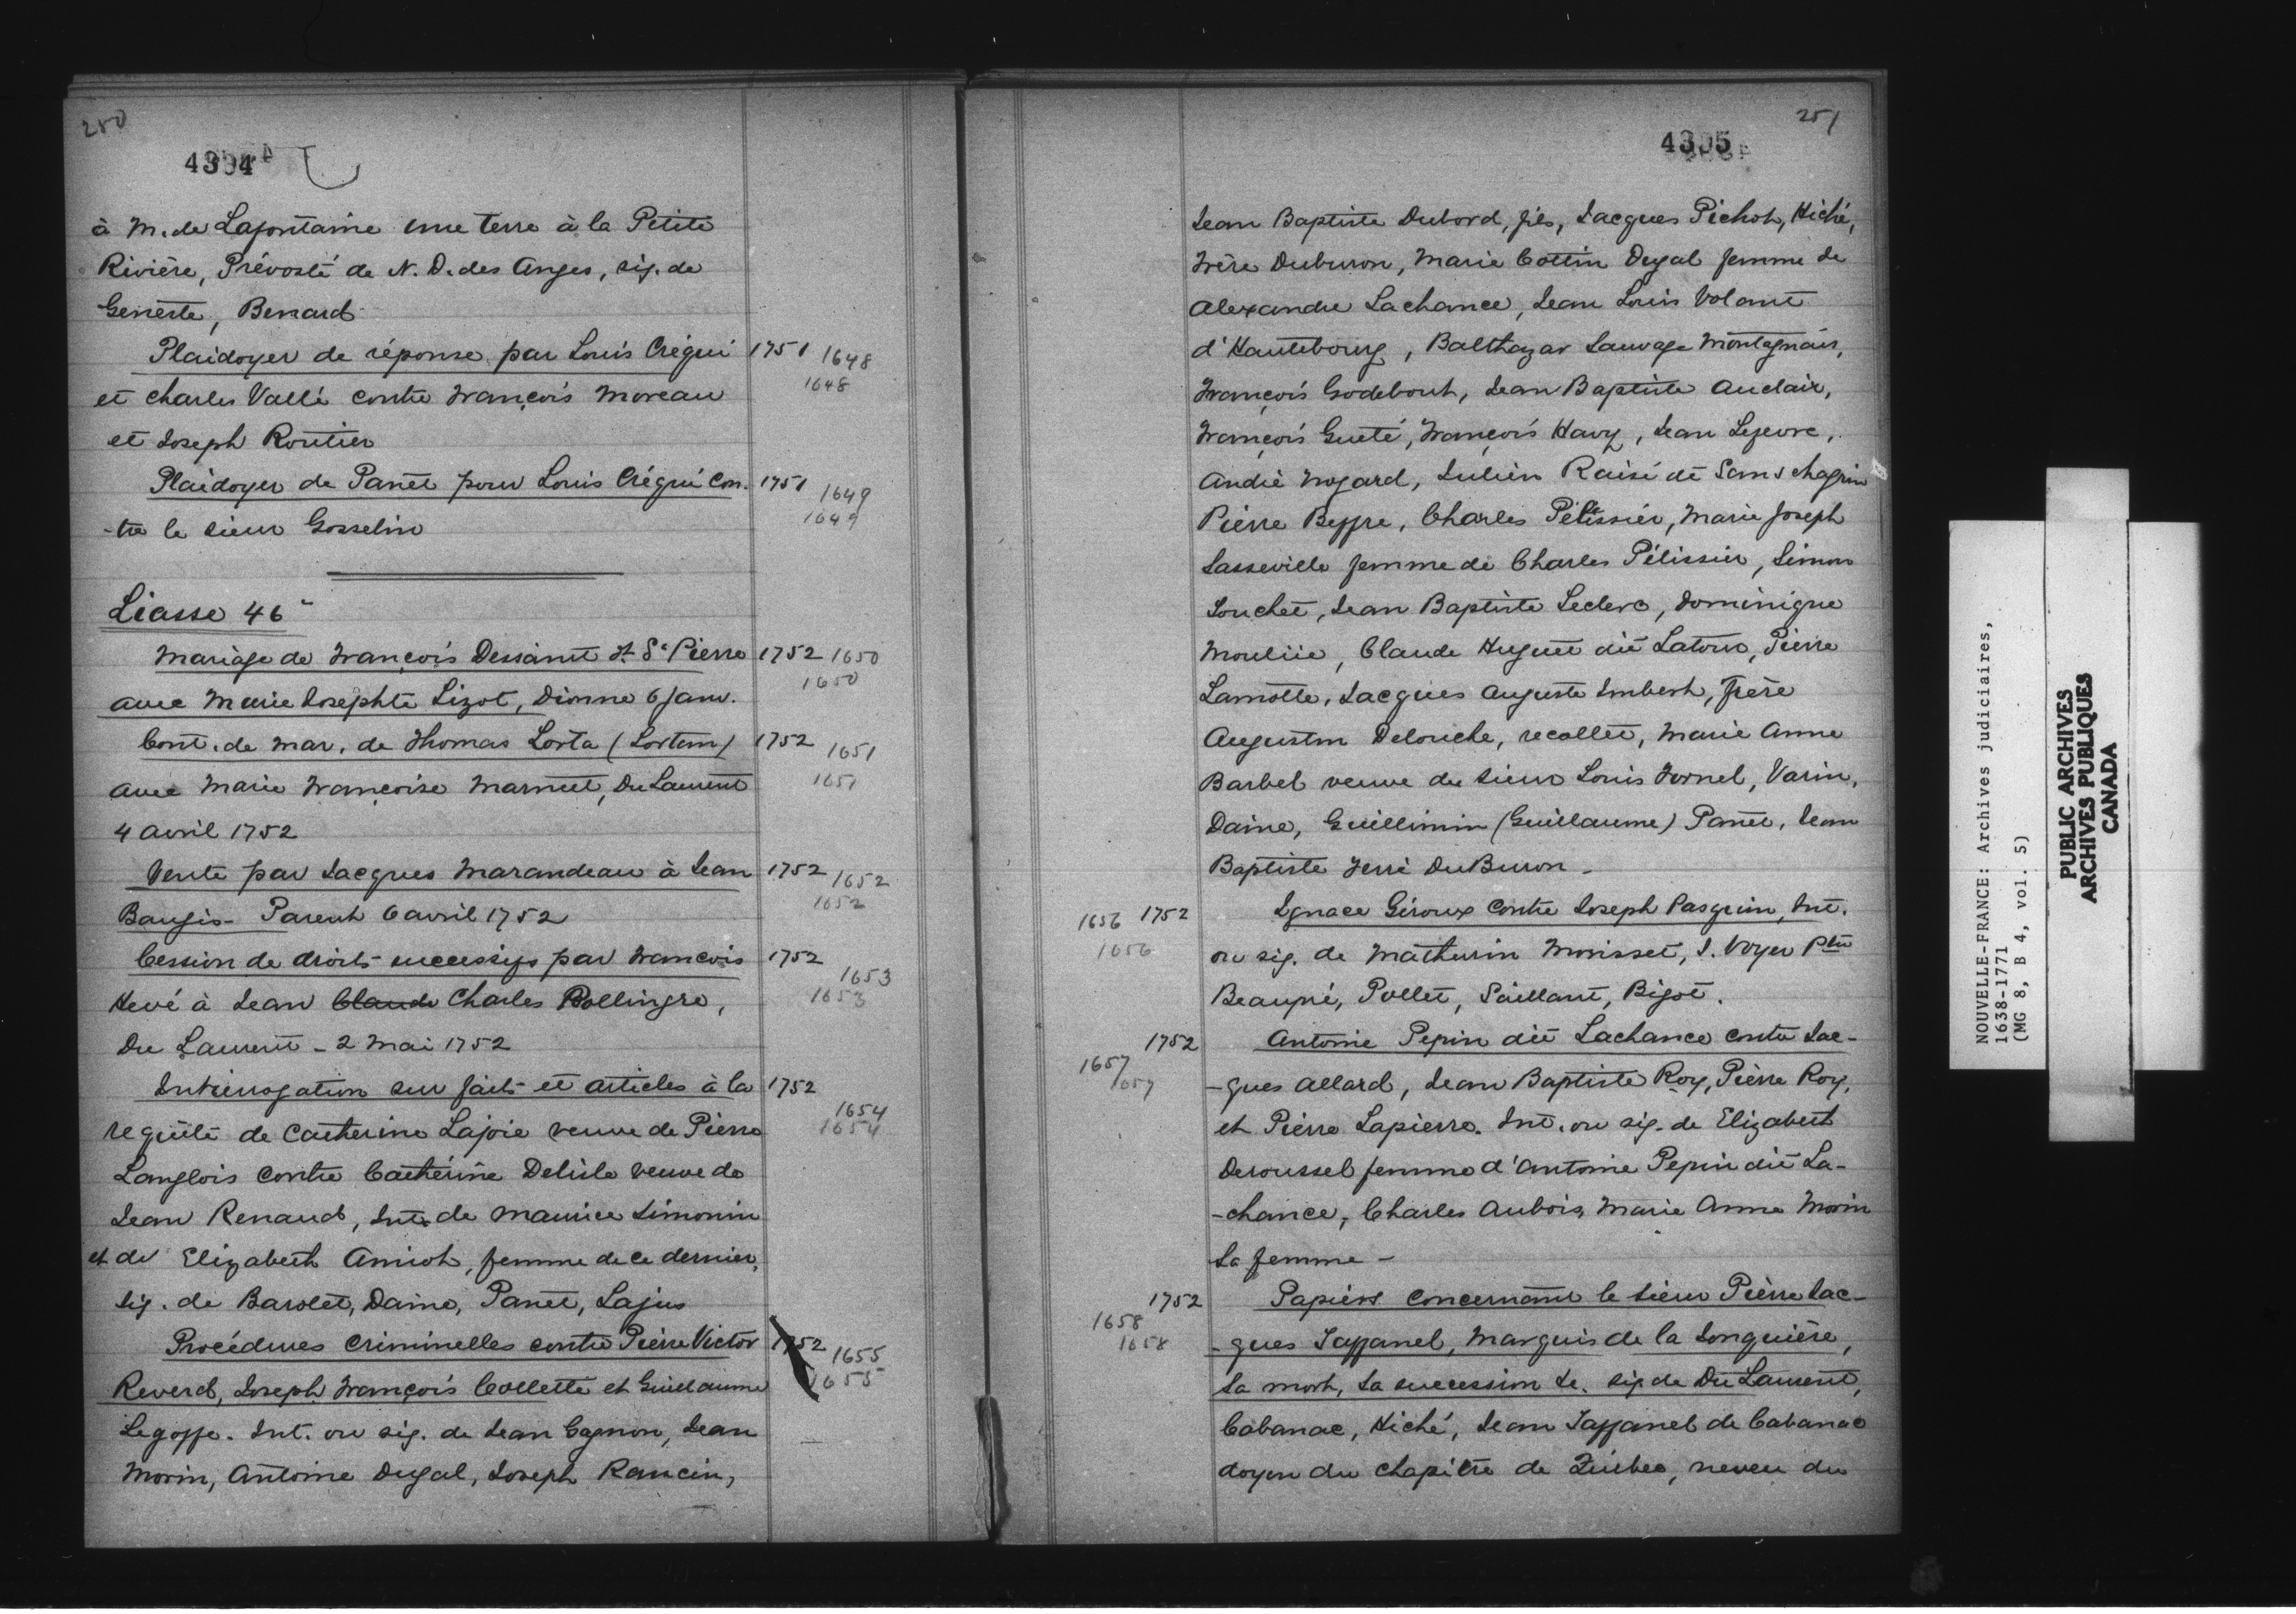 250
4304
à M. de Lafontaine une terre à la Petite
Rivière, Prévosté de N. D. des Anges, sig. de
Geneste, Benard
Plaidoyer de réponse par Louis Crégui 1751 1648
1648
et Charles Vallé contre François Moreau
et Joseph Routier
Plaidoyer de Panet pour Louis Crégui con- 1751 1649
1649
-tre le sieur Gosselin
Liasse 46
Mariage de François Dessaint dt St Pierre 1752 1650
1650
avec Marie Josephte Lizot, Dionne 6 janv.
Cont. de mar. de Thomas Lorta (Lortem) 1752 1651
1651
avec Marie Françoise Marmet, Du Laurent
4 avril 1752
Vente par Jacques Marandeau à Jean 1752 1652
1652
Baugis - Parent 6 avril 1752
Cession de droits successifs par François 1752 1653
1653
Hevé à Jean Claude Charles Rollingre,
Du Laurent - 2 Mai 1752
Interrogation sur faits et articles à la 1752 1654
1654
requête de Catherine Lajoie veuve de Pierre
Langlois contre Catherine Delisle veuve de
Jean Renaud, Int. de Maurice Simonin
et de Elizabeth Amiot, femme de ce dernier,
sig. de Barolet, Daine, Panet, Lajus
Procédures criminelles contre Pierre Victor 1752 1655
1655
Reverd, Joseph François Collette et Guillaume
Legoffe. Int. ou sig. de Jean Cagnon, Jean
Morin, Antoine Dugal, Joseph Rancin,
251
4305
Jean Baptiste Dubord, fils, Jacques Pichot, Hiché,
Frère Duburon, Marie Cottin Dugal femme de
Alexandre Lachance, Jean Louis Volant
d'Hautebourg, Balthazar Sauvage Montagnais,
François Godebout, Jean Baptiste Auclair,
François Gueté, François Havy, Jean Lefevre,
André Nogard, Julien Raisé dt Sanschagrin
Pierre Beffre, Charles Pélissier, Marie Joseph
Lasseville femme de Charles Pélissier, Simon
Souchet, Jean Baptiste Leclerc, Dominique
Claude Huguet dit Latour, Pierre
Lamotte, Jacques Auguste Imbert, frère
Augustin Delouche, recollet, Marie Anne
Barbel veuve du sieur Louis Fornel, Varin,
Daine, Guillimin (Guillaume) Panet, Jean
Baptiste Ferré DuBuron -
1656 1752 Ignace Giroux contre Joseph Pasquin, Int.
1656
ou sig. de Mathurin Morisset, J. Voyer Ptre
Beaupré, Pollet, Saillant, Bigot.
1657 1752 Antoine Pepin dit Lachance contre Jac-
1657
-ques Allard, Jean Baptiste Roy, Pierre Roy,
et Pierre Lapierre. Int. ou sig. de Elizabeth
Deroussel femme d'Antoine Pepin dit La-
-chance, Charles Aubois, Marie Anne Morin
sa femme -
1658 1752 Papiers concernant le sieur Pierre Jac-
1658
-ques Taffanel, Marquis de la Jonquière,
sa mort, sa succession &c. sig. de Du Laurent,
Cabanac, Hiché, Jean Taffanel de Cabanac
doyen du chapitre de Québec, neveu du
NOUVELLE-FRANCE: Archives judiciaires,
1638-1771
(MG 8, B 4, vol. 5)
PUBLIC ARCHIVES
ARCHIVES PUBLIQUES
CANADA